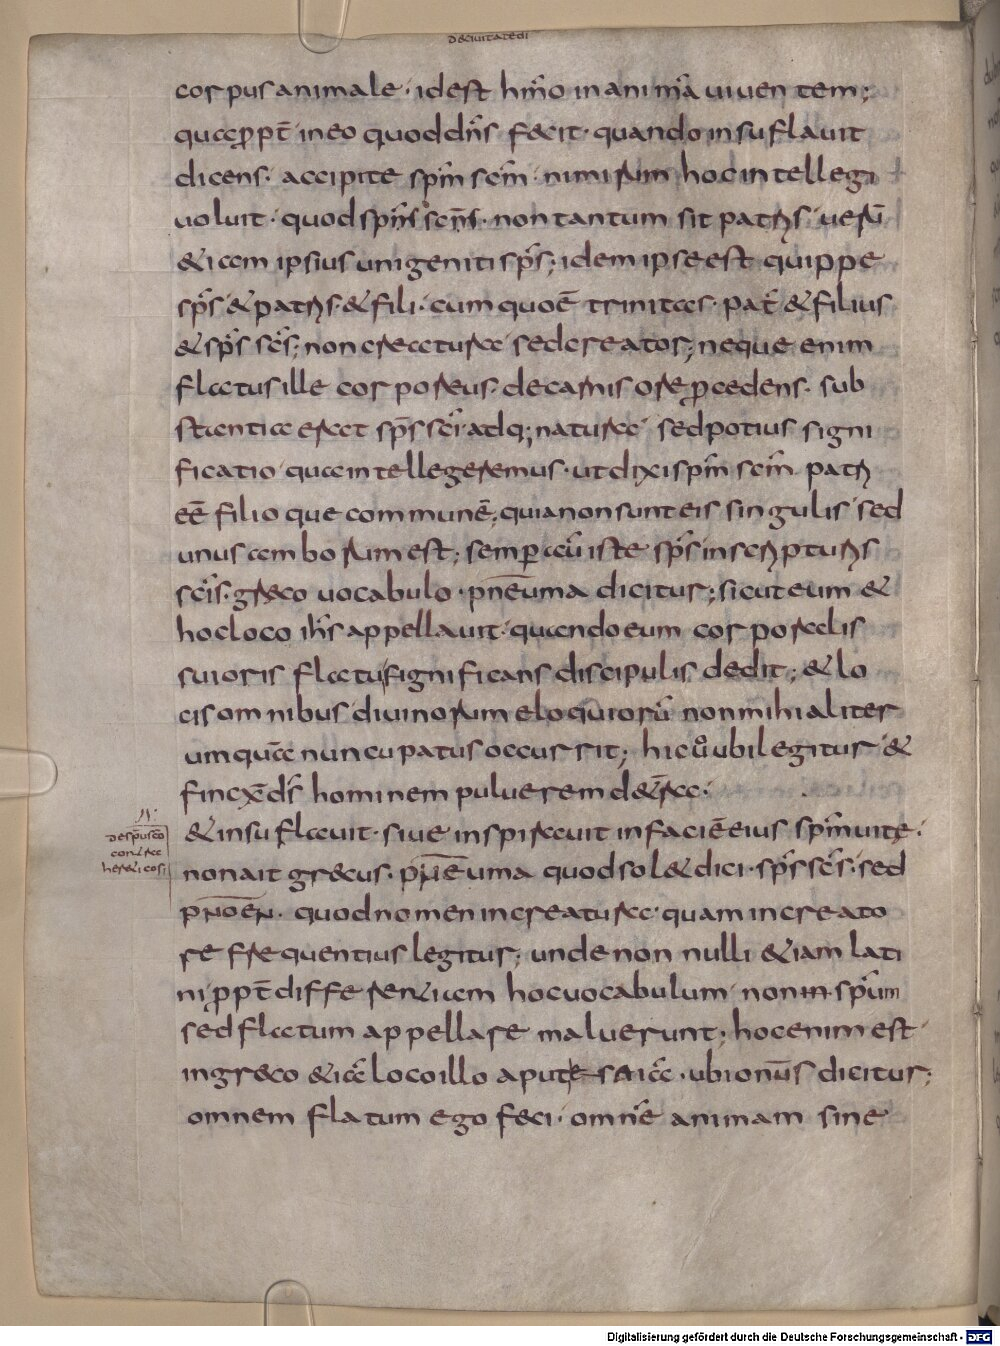 decivitatedi
corpus animale · id est hōmo in animā viventem;
quapropt̄ in eo quod dn̄s fecit · quando insuflavit
dicens · accipite spm̄ scm̄ · nimirum hoc intellegi
voluit · quod spm̄s scn̄s · non tantum sit patris · verū
&iam ipsius unigeniti sps̄; idem ipse est quippe
sps̄ & patris · & fili · cum quoē trinitas · pat̄ & filius
& sps̄ scs̄; non creatura sed creator; neque enim
flatus ille corporeus · de carnis ore procedens · sub
stantia erat sps̄ sci · adq; natura · sed potius signi
ficatio · qua intellegeremus · ut dixi spm̄ scm̄ patri
eē filioque communē; quia non sunt eis singulis sed
unus amborum est; semper aū iste sps̄ in scripturis
scīs · greco vocabulo · pneuma dicitur; sicut eum &
hoc loco ihs̄ appellavit · quando eum corporalis
sui oris flatu significans discipulis dedit; & lo
cis omnibus divinorum eloquiorū non mihi aliter
umquā nuncupatus occurrit; hic v̊ ubi legitur · &
finx̄ ds̄ hominem pulverem de t̄ra ·
& insuflavit · sive inspiravit in faciē eius spm̄ vitę ·
non ait grecus · pneuma quod sol& dici · sps̄ scs̄ · sed
pnoen · quod nomen in creatura · quam in creato
re frequentius legitur; unde nonnulli &iam lati
ni ppt̄ differentiam hoc vocabulum non in spm̄
sed flatum appellare maluerunt; hoc enim est
in greco &iā loco illo aput esaiā · ubi onūs dicitur;
omnem flatum ego feci · omnē animam sine
de spū sco
contra
hereticos